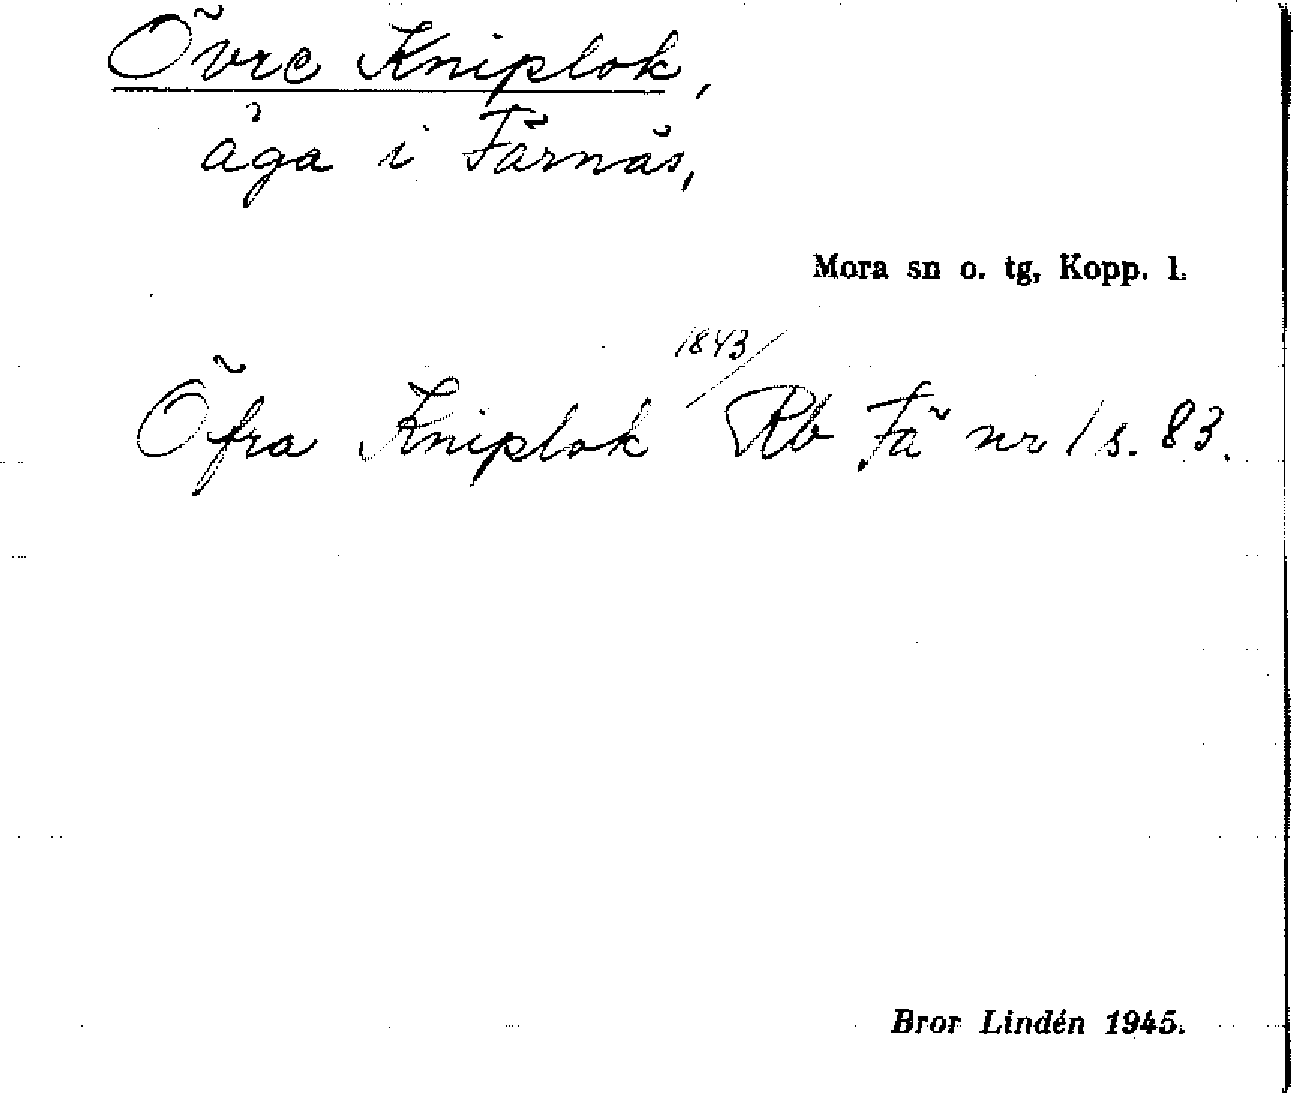 Övre Kniplok,
äga i Färnäs,
Mora sn o. tg, Kopp. l.
1843/
Öfra Kniplok Rb Fä nr 1 s. 83.
Bror Lindén 1945.